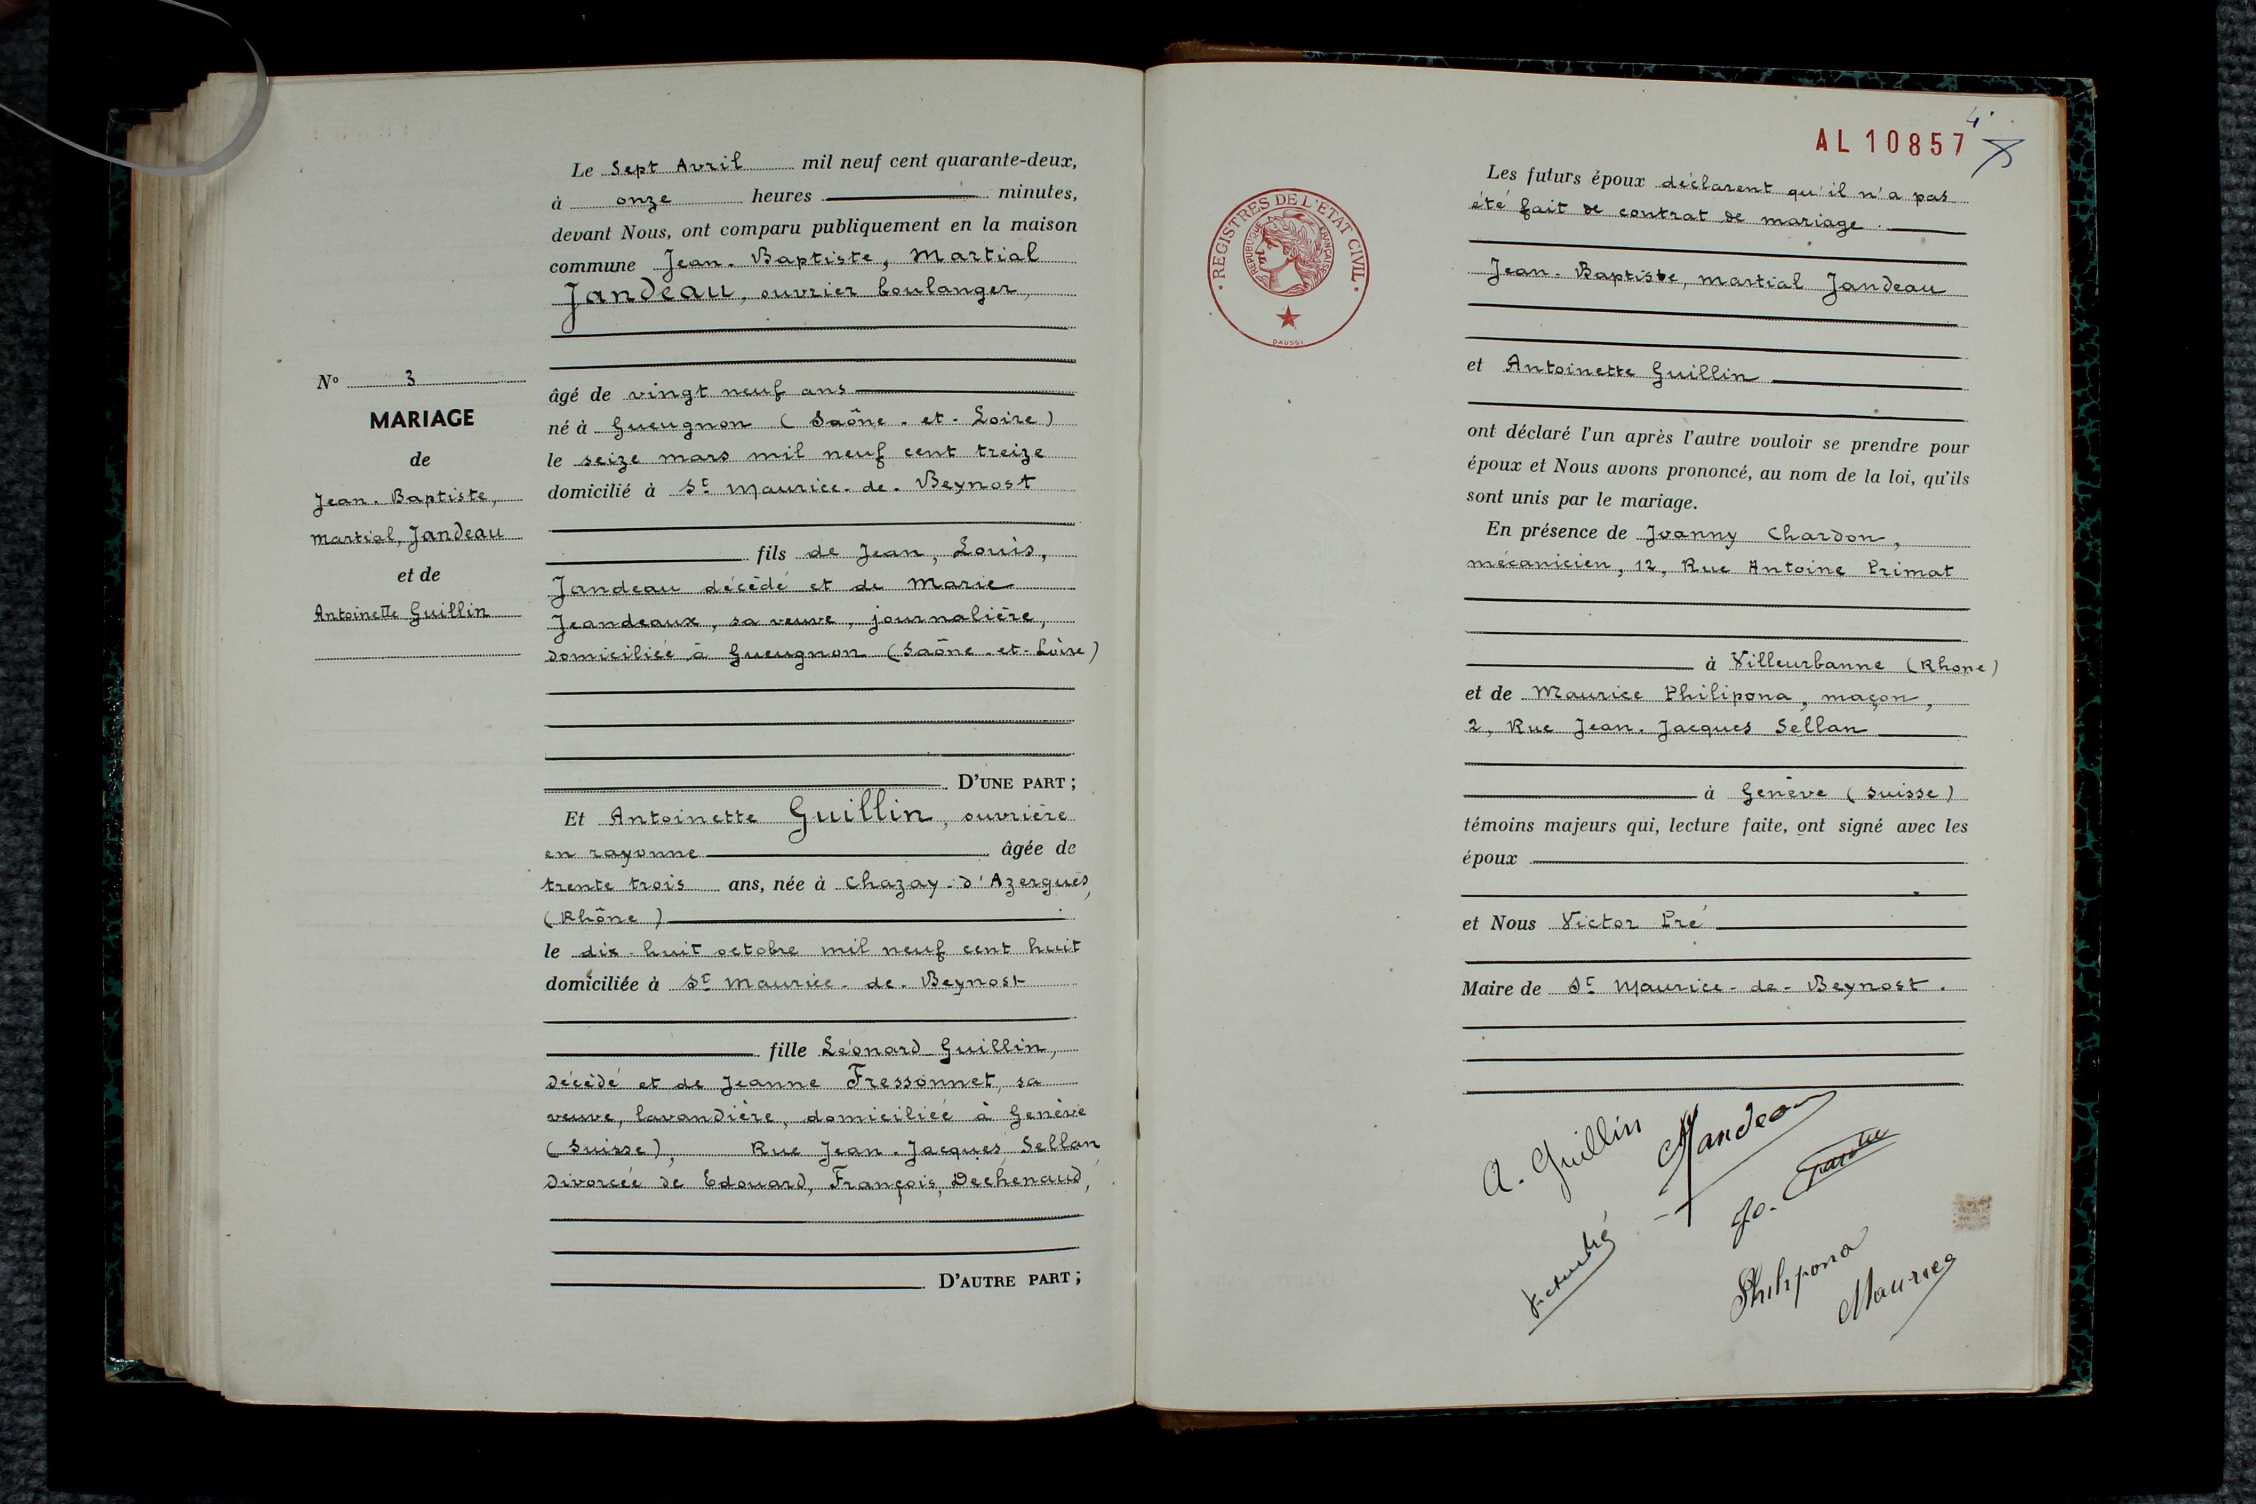 Le Sept Avril mil neuf cent quarante-deux,
à onze heures minutes,
devant Nous, ont comparu publiquement en la maison
commune Jean. Baptiste, Martial
Jandeau, ouvrier boulanger,
âgé de vingt neuf ans
né à Gueugnon (Saône. et. Loire)
le seize mars mil neuf cent treize
domicilié à St Maurice. de. Beynost
fils de Jean, Louis,
Jandeau décédé et de Marie
Jeandeaux, sa veuve, journalière,
domiciliée à Gueugnon (Saône. et. Loire)
D'UNE PART ;
Et Antoinette Guillin, ouvrière
en rayonne âgée de
trente trois ans, née à Chazay. d'Azergues,
(Rhône)
le dix-huit octobre mil neuf cent huit
domiciliée à St Maurice. de. Beynost
fille Léonard Guillin,
décédé et de Jeanne Fressonnet, sa
veuve, lavandière, domiciliée à Genève
(Suisse), Rue Jean. Jacques Sellan
divorcée de Edouard, François, Dechenaud,
D'AUTRE PART ;
No 3
MARIAGE
de
Jean. Baptiste,
Martial, Jandeau
et de
Antoinette Guillin
AL 10857
4
REGISTRES DE L'ETAT CIVIL
REPUBLIQUE FRANÇAISE
DAUSSI
Les futurs époux déclarent qu'il n'a pas
été fait de contrat de mariage.
Jean. Baptiste, martial Jandeau
et Antoinette Guillin
ont déclaré l'un après l'autre vouloir se prendre pour
époux et Nous avons prononcé, au nom de la loi, qu'ils
sont unis par le mariage.
En présence de Joanny Chardon,
mécanicien, 12, Rue Antoine Primat
à Villeurbanne (Rhone)
et de Maurice Philipona, maçon,
2, Rue Jean. Jacques Sellan
à Genève (Suisse)
témoins majeurs qui, lecture faite, ont signé avec les
époux
et Nous Victor Pré
Maire de St Maurice-de-Beynost.
A. Guillin
Jandeau
Jo.
Victor Pré
Philipona
Maurice